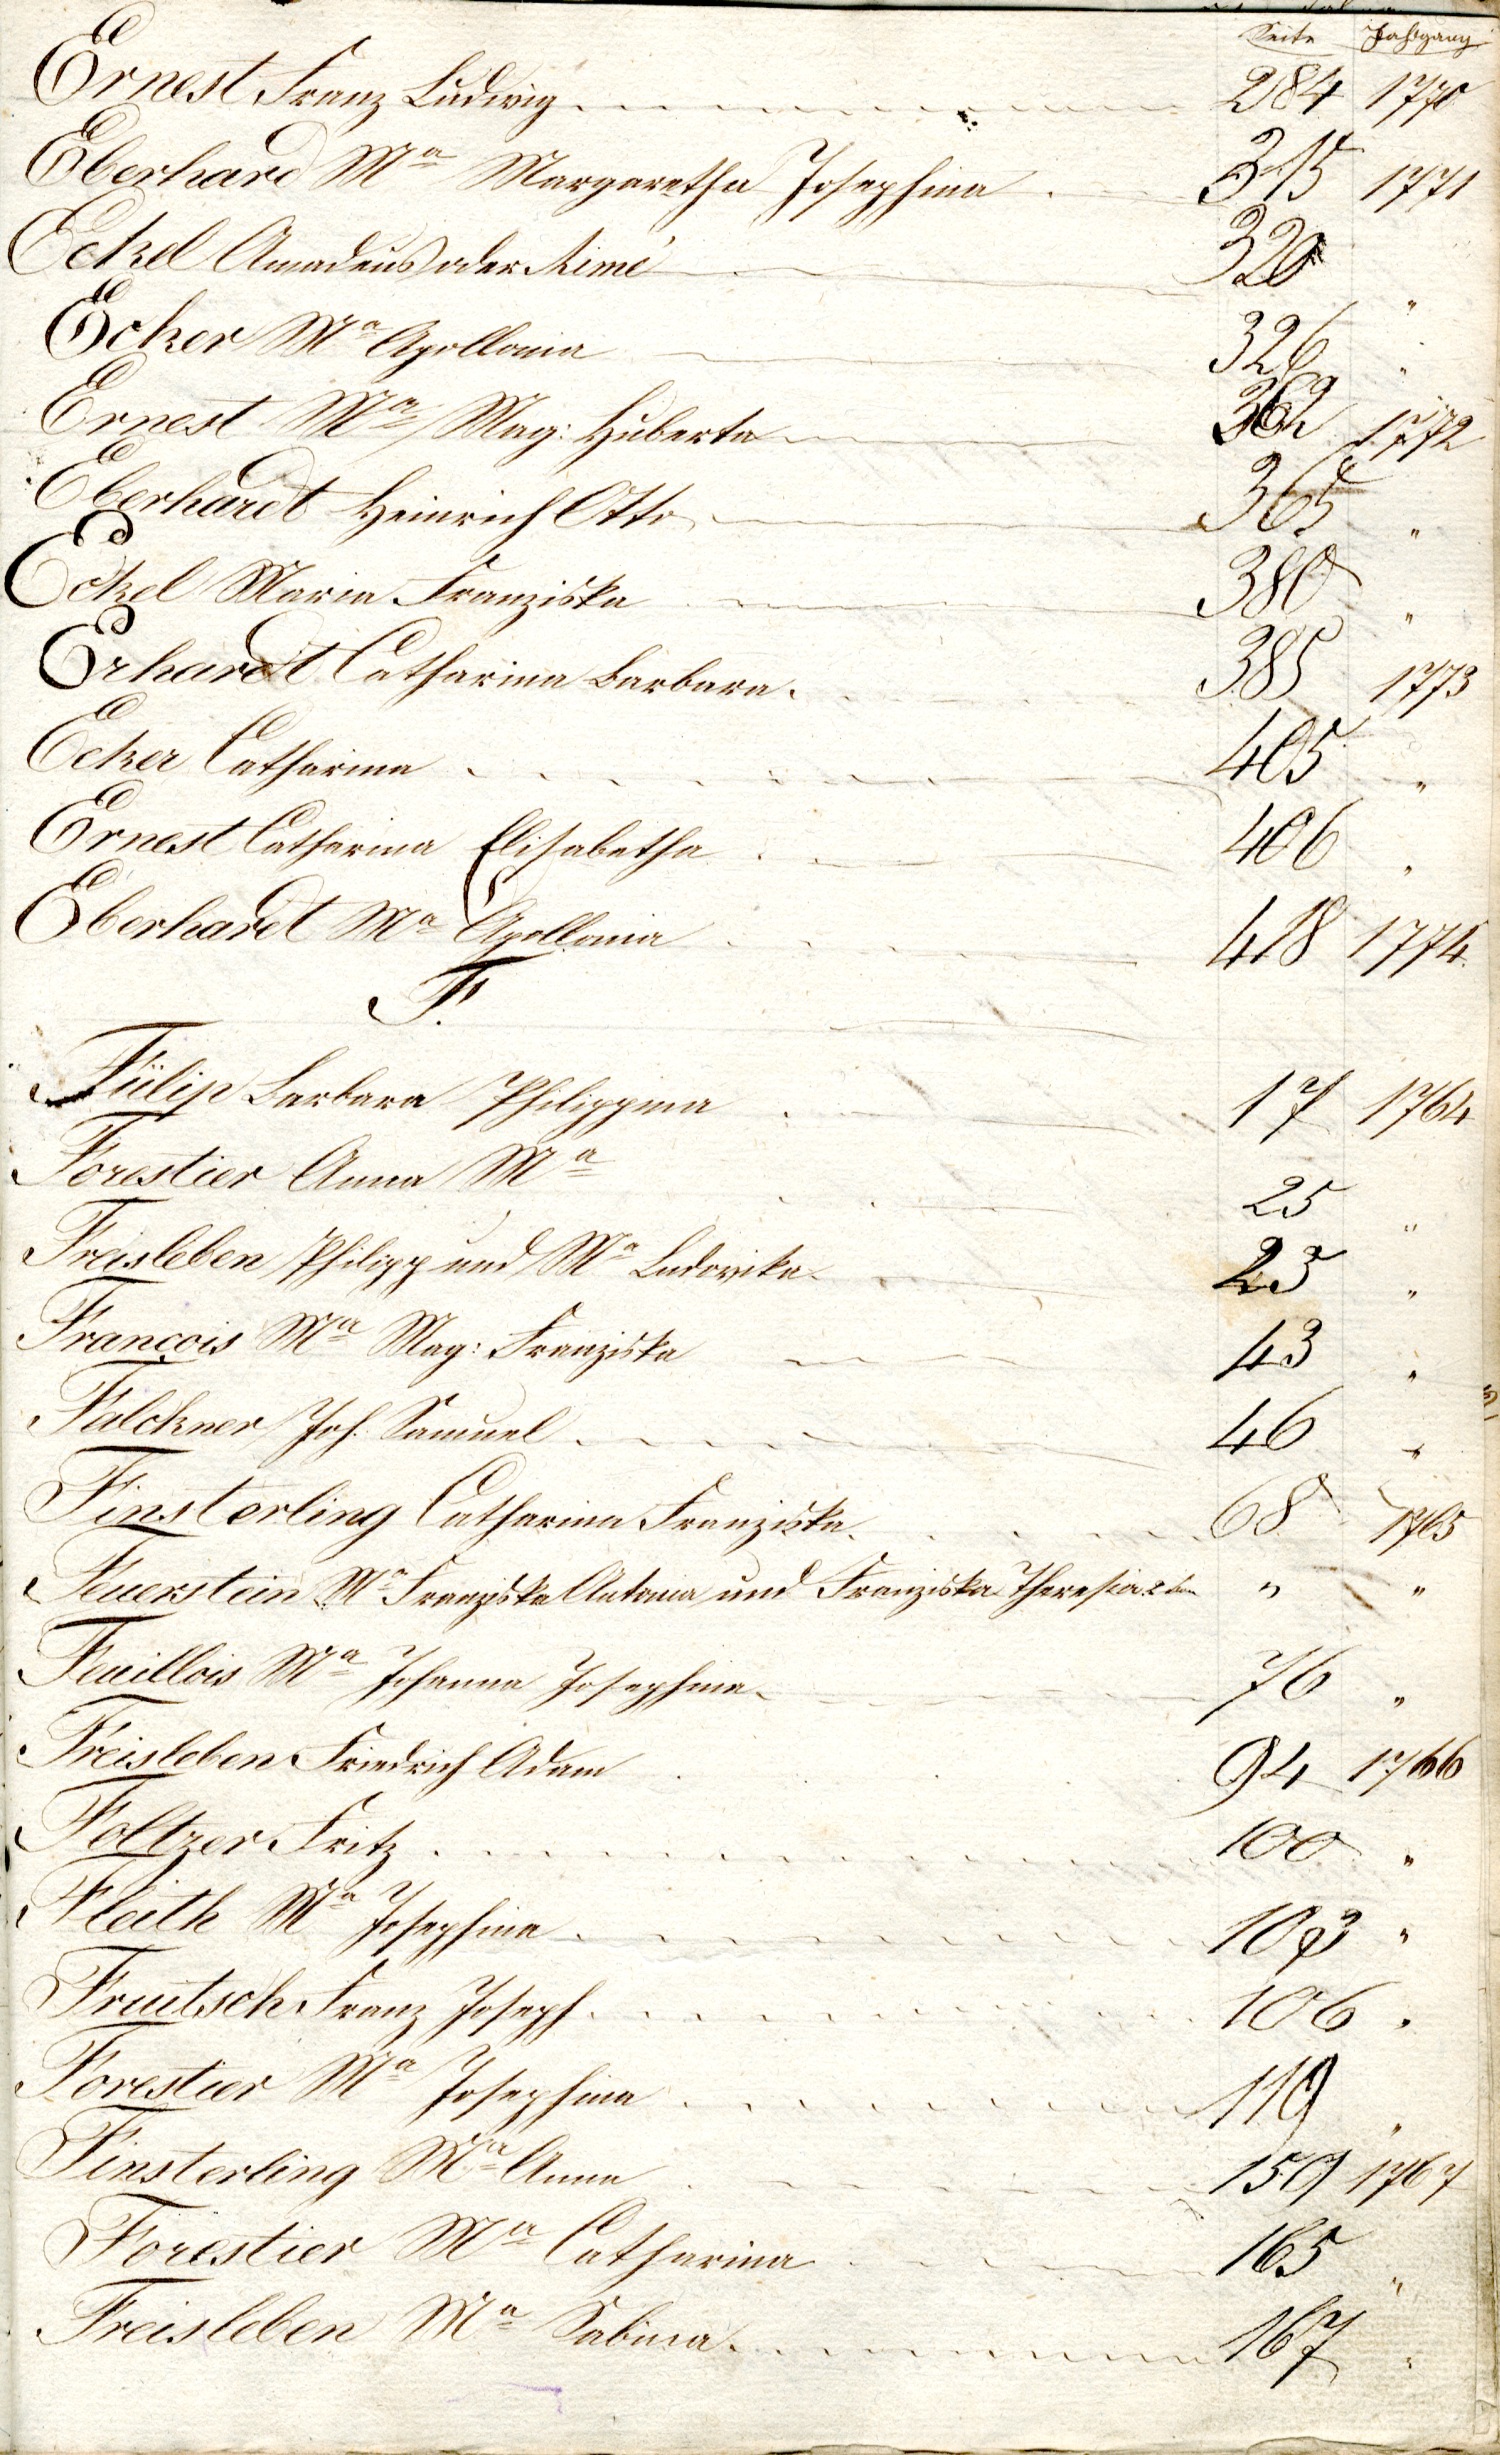 Seite Jahrgang
Ernest Franz Ludwig 284 1770
Eberhard Ma Margaretha Josephina 315 1771
Eckel Amadeus oder Aimé 320 "
Ecker Ma Apollonia 326 "
Ernest Ma Mag: Huberta 362 1772
Eberhardt Heinrich Otto 365 "
Eckel Maria Franziska 380 "
Erhardt Catharina Barbara 385 1773
Ecker Catharina 405 "
Ernest Catharina Elisabetha 406 "
Eberhardt Ma Apollonia 418 1774
F.
Fülip Barbara Philippina 17 1764
Forestier Anna Ma 25 "
Freisleben Philipp und Ma Ludovika 23 "
François Ma Mag: Franziska 43 "
Falckner Joh. Samuel 46 "
Finsterling Catharina Franziska 68 1765
Feuerstein Ma Franziska Antonia und Franziska Theresia " "
Feuillois Ma Johanna Josephina 76 "
Freisleben Friedrich Adam 94 1766
Foltzer Fritz 100 "
Fleith Ma Josephina 103 "
Fruitsch Franz Joseph 106 "
Forestier Ma Josephina 119 "
Finsterling Ma Anna 159 1767
Forestier Ma Catharina 165 "
Freisleben Ma Sabina 167 "